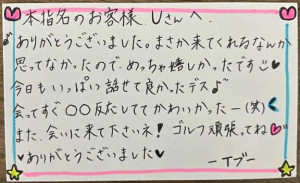 本指名のお客様 Uさんへ.
♪ありがとうございました。まさか来てくれるなんか
思ってなかったので、めっちゃ嬉しかったです♡
今日もいっぱい話せて良かったデス♪
会ってすぐ〇〇反応しててかわいかったー(笑)
また、会いに来て下さいネ! ゴルフ頑張ってね♡
♥ありがとうございました♥
ーイブー